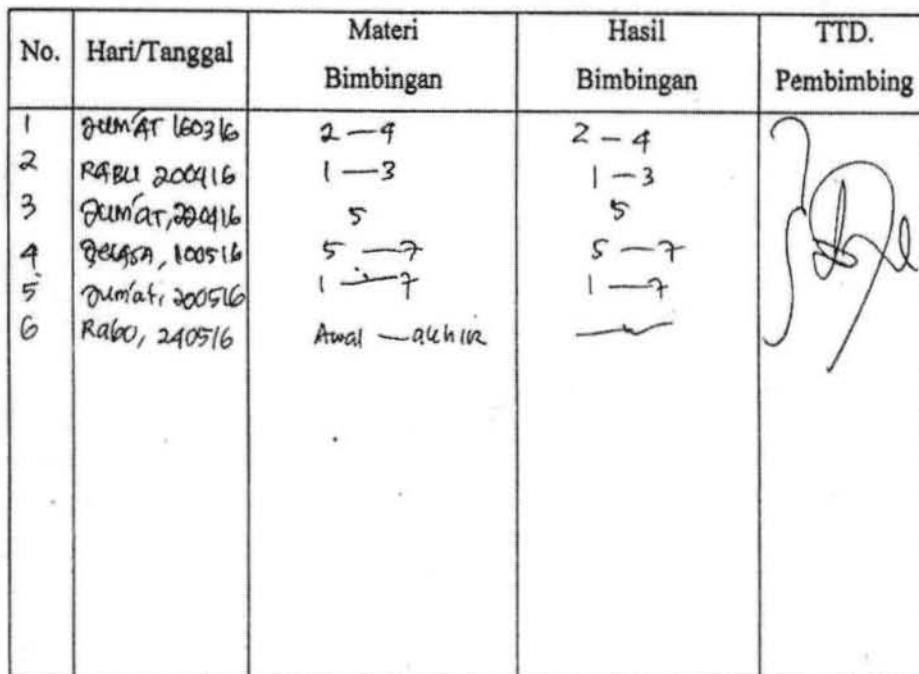 No. Hari/Tanggal Materi Bimbingan Hasil Bimbingan TTD. Pembimbing
1 Jum'AT 160316 2 — 4 2 — 4
2 RABU 200416 1 — 3 1 — 3
3 Jum'at, 220416 5 5
4 Selasa, 100516 5 — 7 5 — 7
5 Jum'at, 200516 1 — 7 1 — 7
6 Rabo, 240516 Awal — akhir